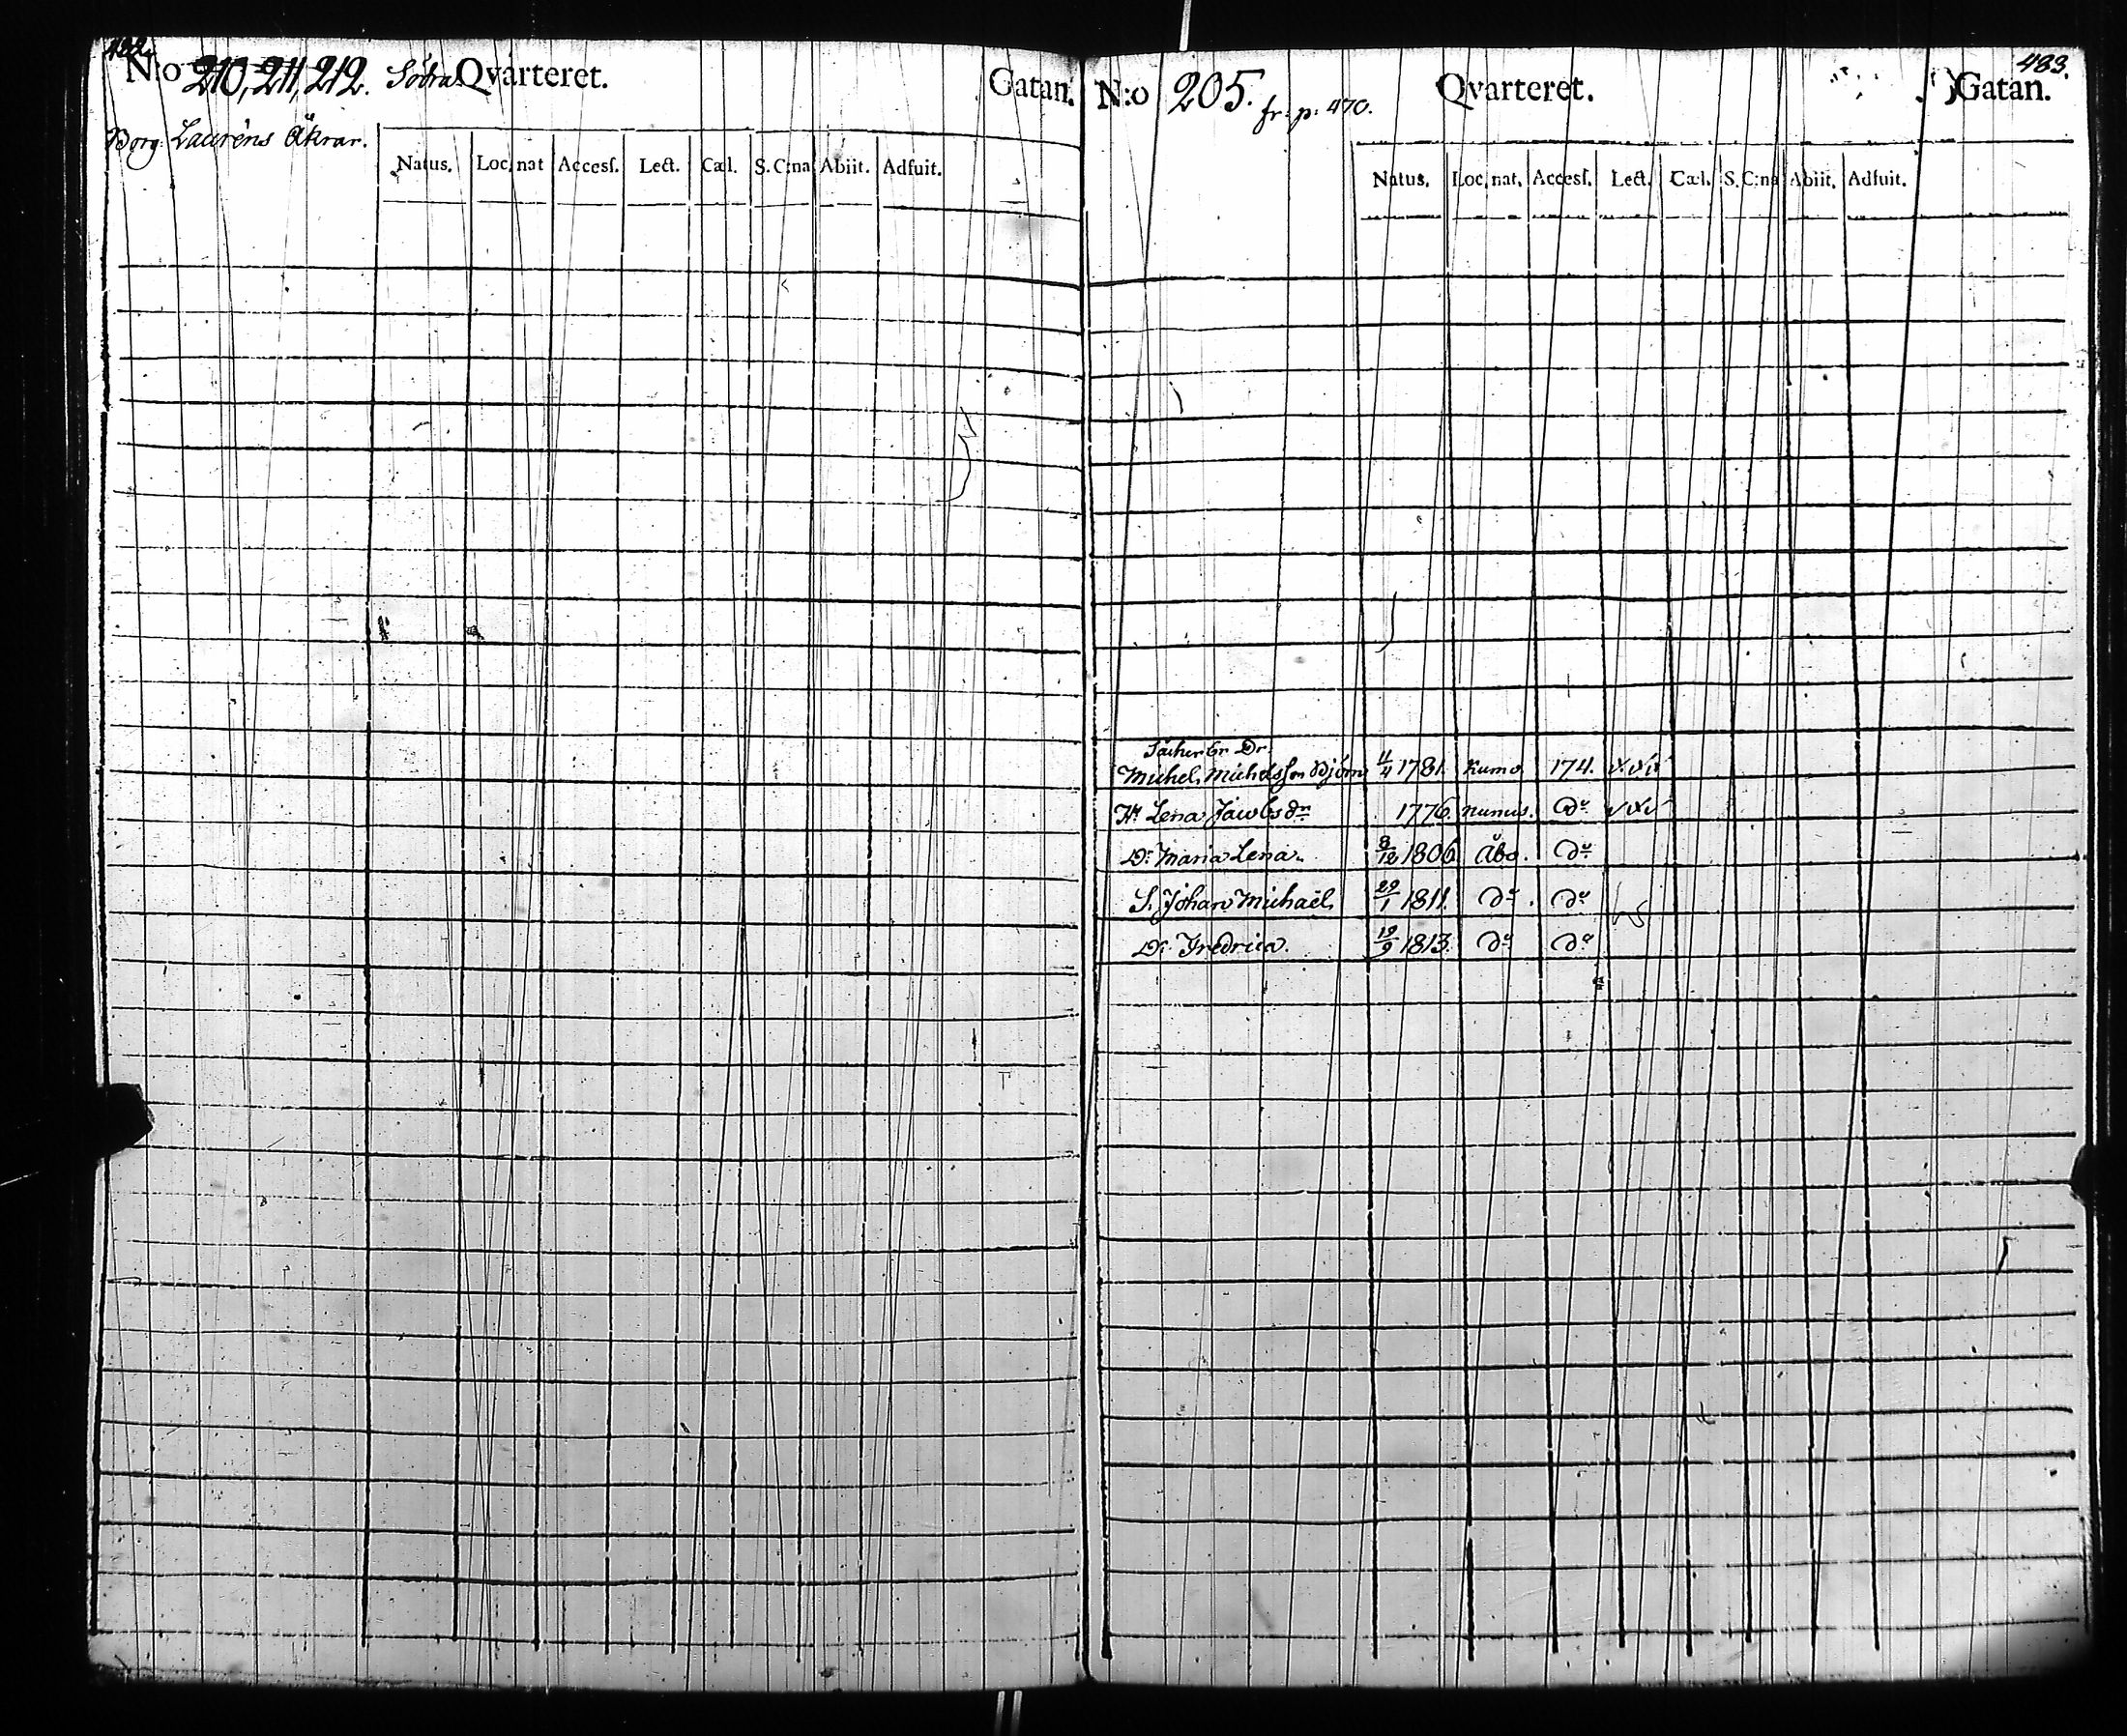 482.
N:o 210, 211, 212. Södra Qvarteret. Gatan.
Borg. Lauréns Åkrar.
Natus. Loc. nat Accesſ. Lect. Cæl. S. C:na Abiit. Adfuit.
483.
N:o 205. fr. p. 470. Qvarteret. Gatan.
Natus. Loc. nat. Accesſ. Lect. Cæl. S. C:na Abiit. Adfuit.
Michel Michelsson Björn 11/4 1781. Kumo 174.
H. Lena Jacobsdr 1776. Numis. Do
D. Maria Lena. 8/12 1806 Åbo. Do
S. Johan Michaël 29/1 1811 Do Do
D. Fredrica. 19/9 1813. Do Do